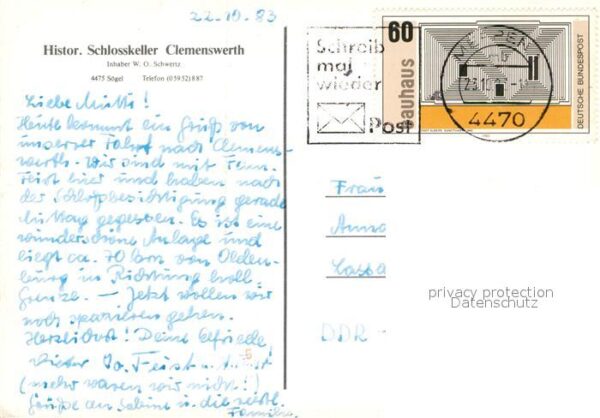 22.10.83
Histor. Schlosskeller Clemenswerth
Inhaber W. O. Schwertz
4475 Sögel Telefon (05952) 887
Liebe Mutti!
Heute kommt ein Gruß von
unserer Fahrt nach Clemens-
werth. Wir sind mit Fam.
Feist hier und haben nach
der Schloßbesichtigung gerade
Mittag gegessen. Es ist eine
wunderschöne Anlage und
liegt ca. 70 km von Olden-
burg in Richtung holl.
Grenze. — Jetzt wollen wir
noch spazieren gehen.
Herzlichst! Deine Elfriede,
Dieter Fam. Feist
(mehr waren wir nicht!)
Grüße an Sabine u. die restl.
Familie.
Schreib
mal
wieder
Post
MEPPEN
4470
60
bauhaus
DEUTSCHE BUNDESPOST
Frau
Anna
privacy protection
Datenschutz
DDR -